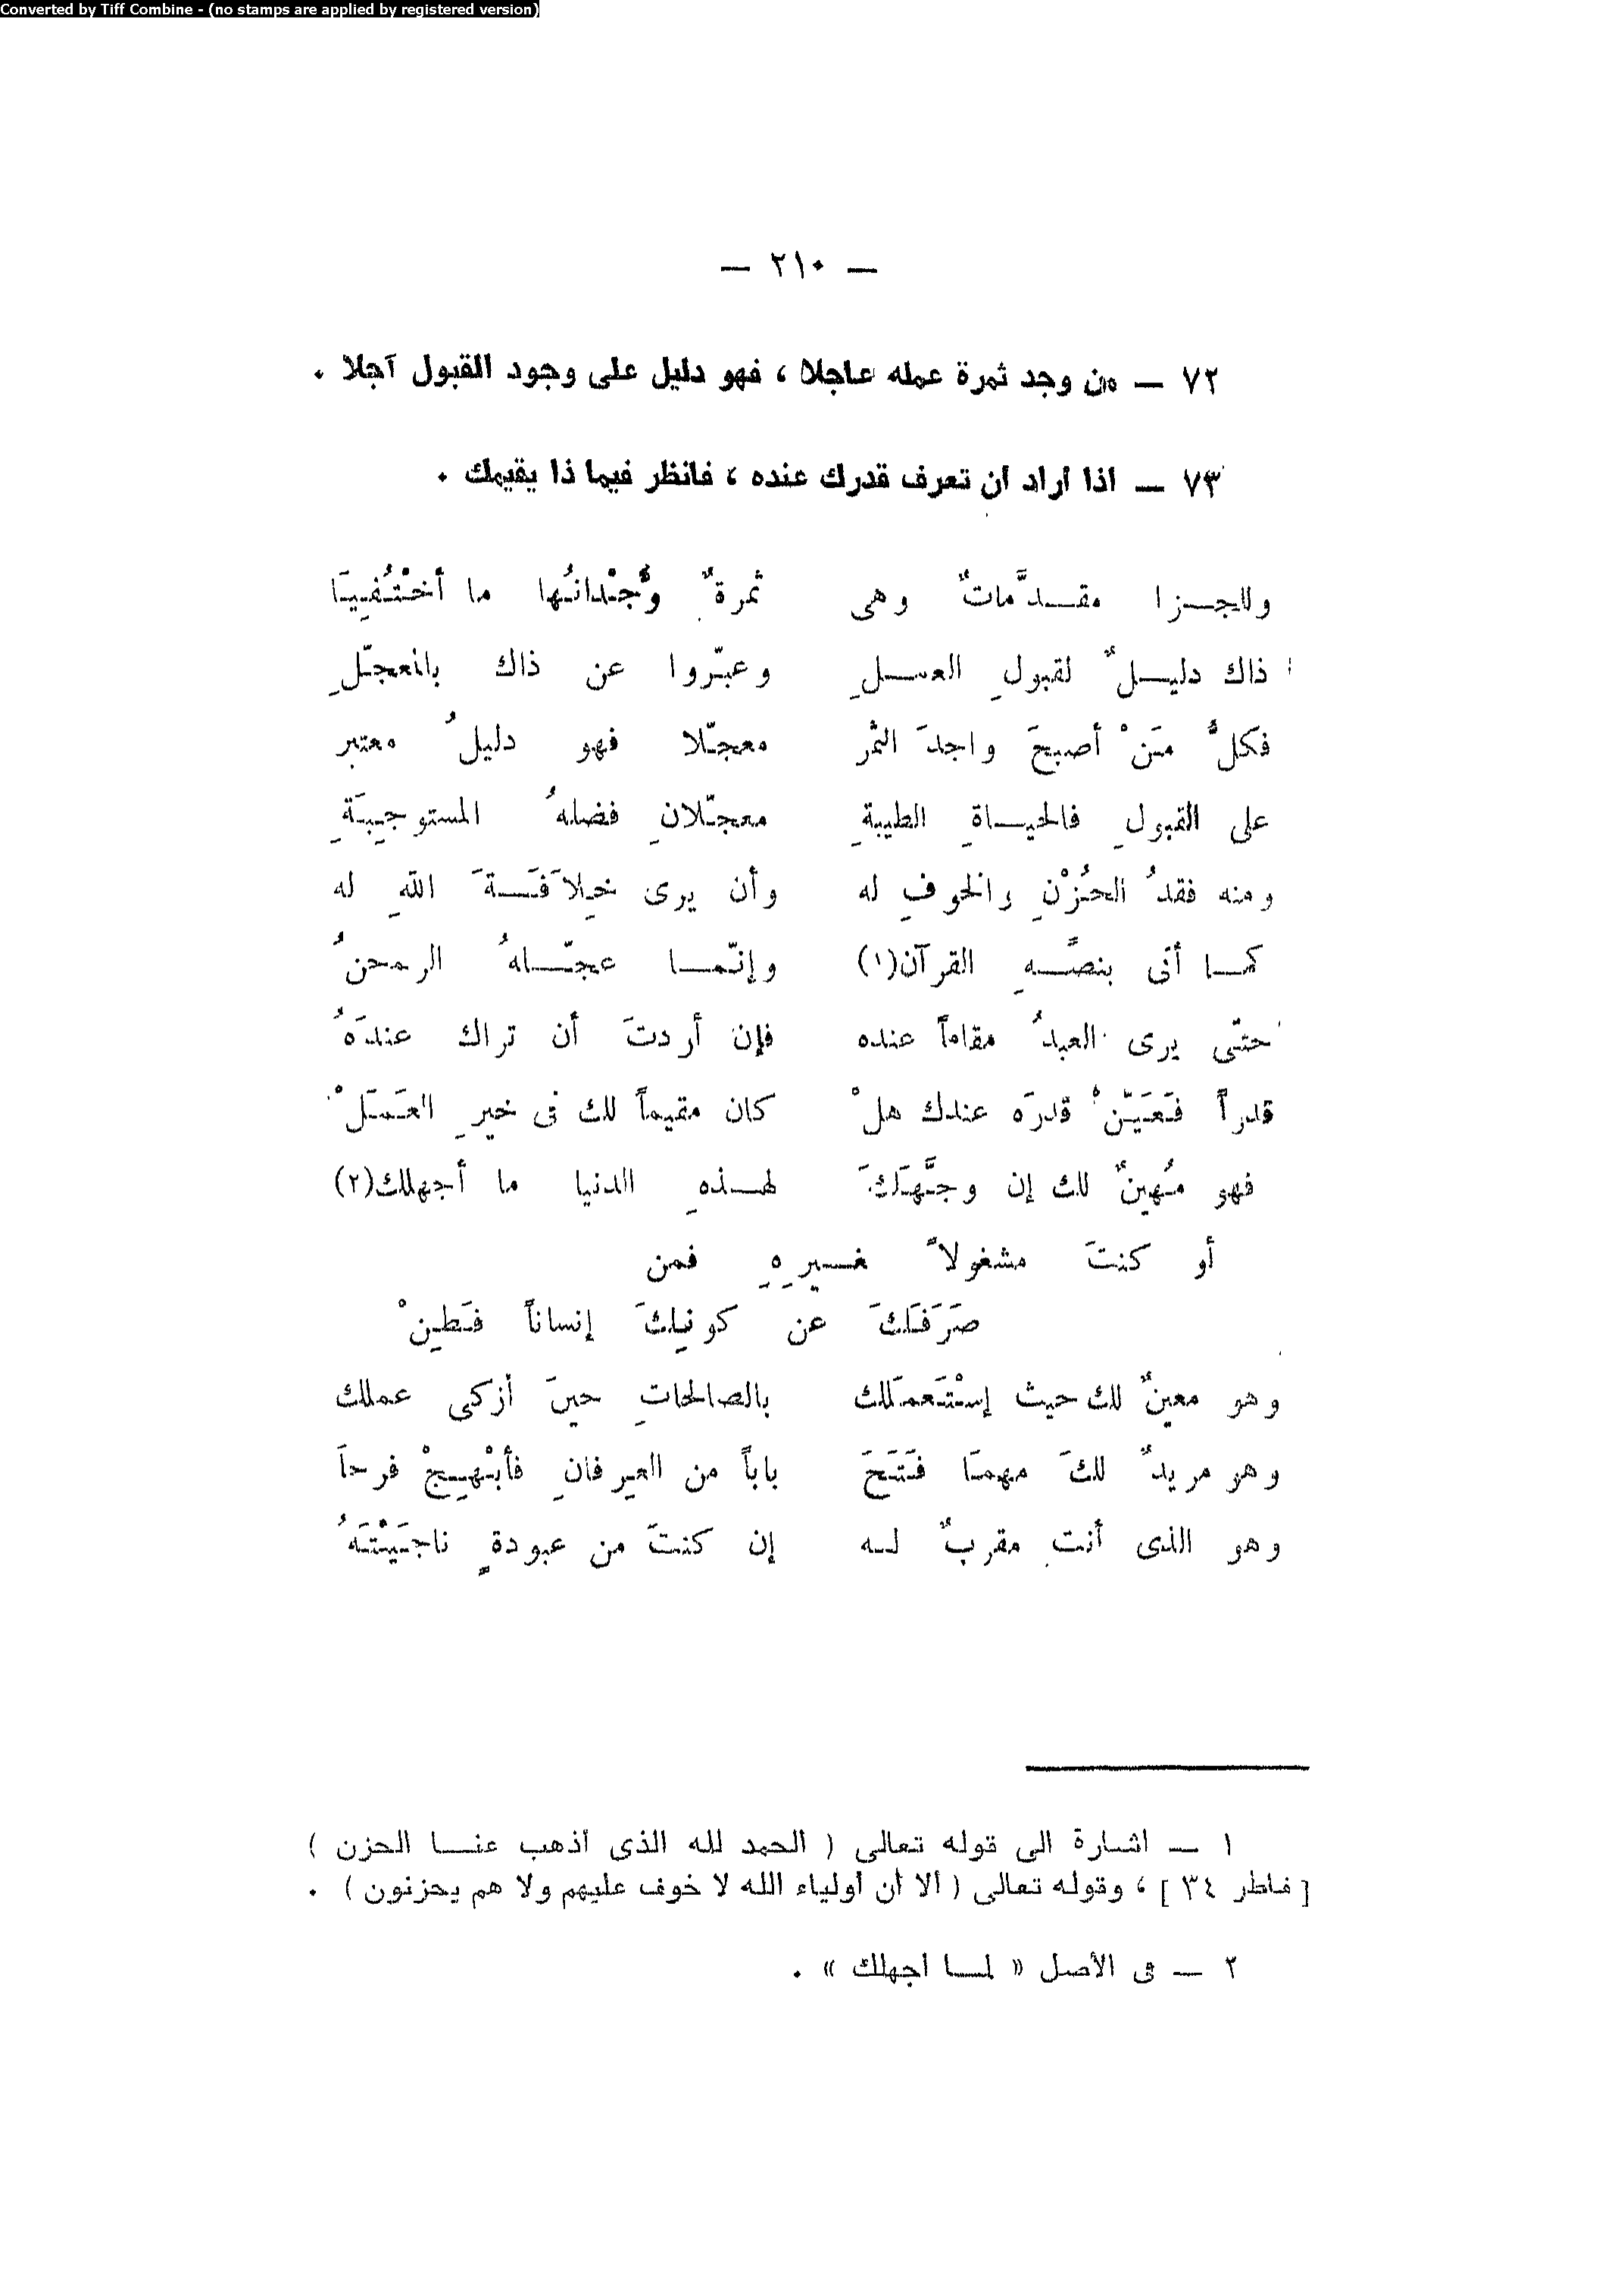 Converted by Tiff Combine - (no stamps are applied by registered version)
— ٢١٠ —
٧٢ — من وجد ثمرة عمله عاجلا ، فهو دليل على وجود القبول آجلا .
٧٣ — اذا أراد أن تعرف قدرك عنده ، فانظر فيما ذا يقيمك .
وللجـزا مقـدَّماتٌ وهى ثمرةٌ وُجْدانُها ما أخْتُفِيَا
ذاك دليـلٌ لقبولِ العمـلِ وعبّروا عن ذاك بالمعجّلِ
فكلُّ مَنْ أصبحَ واجدَ الثمر معجّلا فهو دليلُ معتبر
على القبولِ فالحيـاةِ الطيبةِ معجّلانِ فضلهُ المستوجِبَةِ
ومنه فقدُ الحُزْنِ والخوفِ له وأن يرى خِلاَفَـةَ اللّهِ له
كمـا أتى بنصّـهِ القرآن(١) وإنّمـا عجّـلهُ الرحمنُ
حتّى يرى العبدُ مقاماً عنده فإن أردتَ أن تراك عندَهُ
قدراً فَعَيّنْ قدرَه عندك هلْ كان مقيماً لك فى خيرِ العَمَلْ
فهو مُهينٌ لك إن وجَّهَكَ لهـذهِ الدنيا ما أجهلك(٢)
أو كنتَ مشغولاً غـيرِهِ فمن
صَرَفَكَ عن كونِكَ إنساناً فَطِنْ
وهو معينٌ لك حيث إسْتَعمَلك بالصالحاتِ حينَ أزكى عملك
وهو مريدٌ لكَ مهمَا فَتَحَ باباً من العِرفانِ فأبْهِجْ فرحاَ
وهو الذى أنت مقربٌ لـه إن كنتَ من عبودةٍ ناجَيْتَهُ
١ — اشارة الى قوله تعالى ( الحمد لله الذى أذهب عنـا الحزن )
[ فاطر ٣٤ ] ، وقوله تعالى ( ألا أن أولياء الله لا خوف عليهم ولا هم يحزنون ) .
٢ — فى الأصل « لمـا اجهلك » .